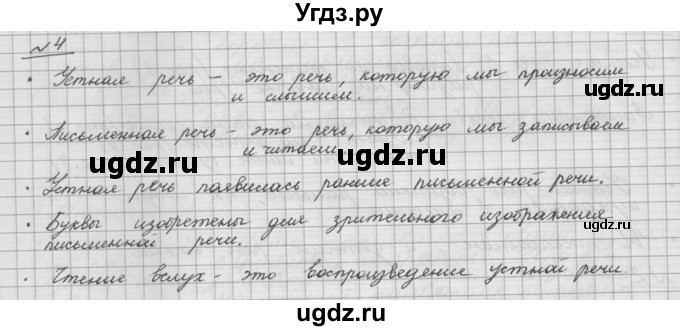 Угдз.ру
№4
• Устная речь – это речь, которую мы произносим
и слышием.
ugdz.ru
ugdz.ru
• Письменная речь – это речь, которую мы записываем
и читаем.
ugdz.ru
ugdz.ru
• Устная речь появилась раньше письменной речи.
ugdz.ru
ugdz.ru
• Буквы изобретены для зрительного изображения
письменной речи.
ugdz.ru
• Чтение вслух – это воспроизведение устной речи
ugdz.ru
ugdz.ru